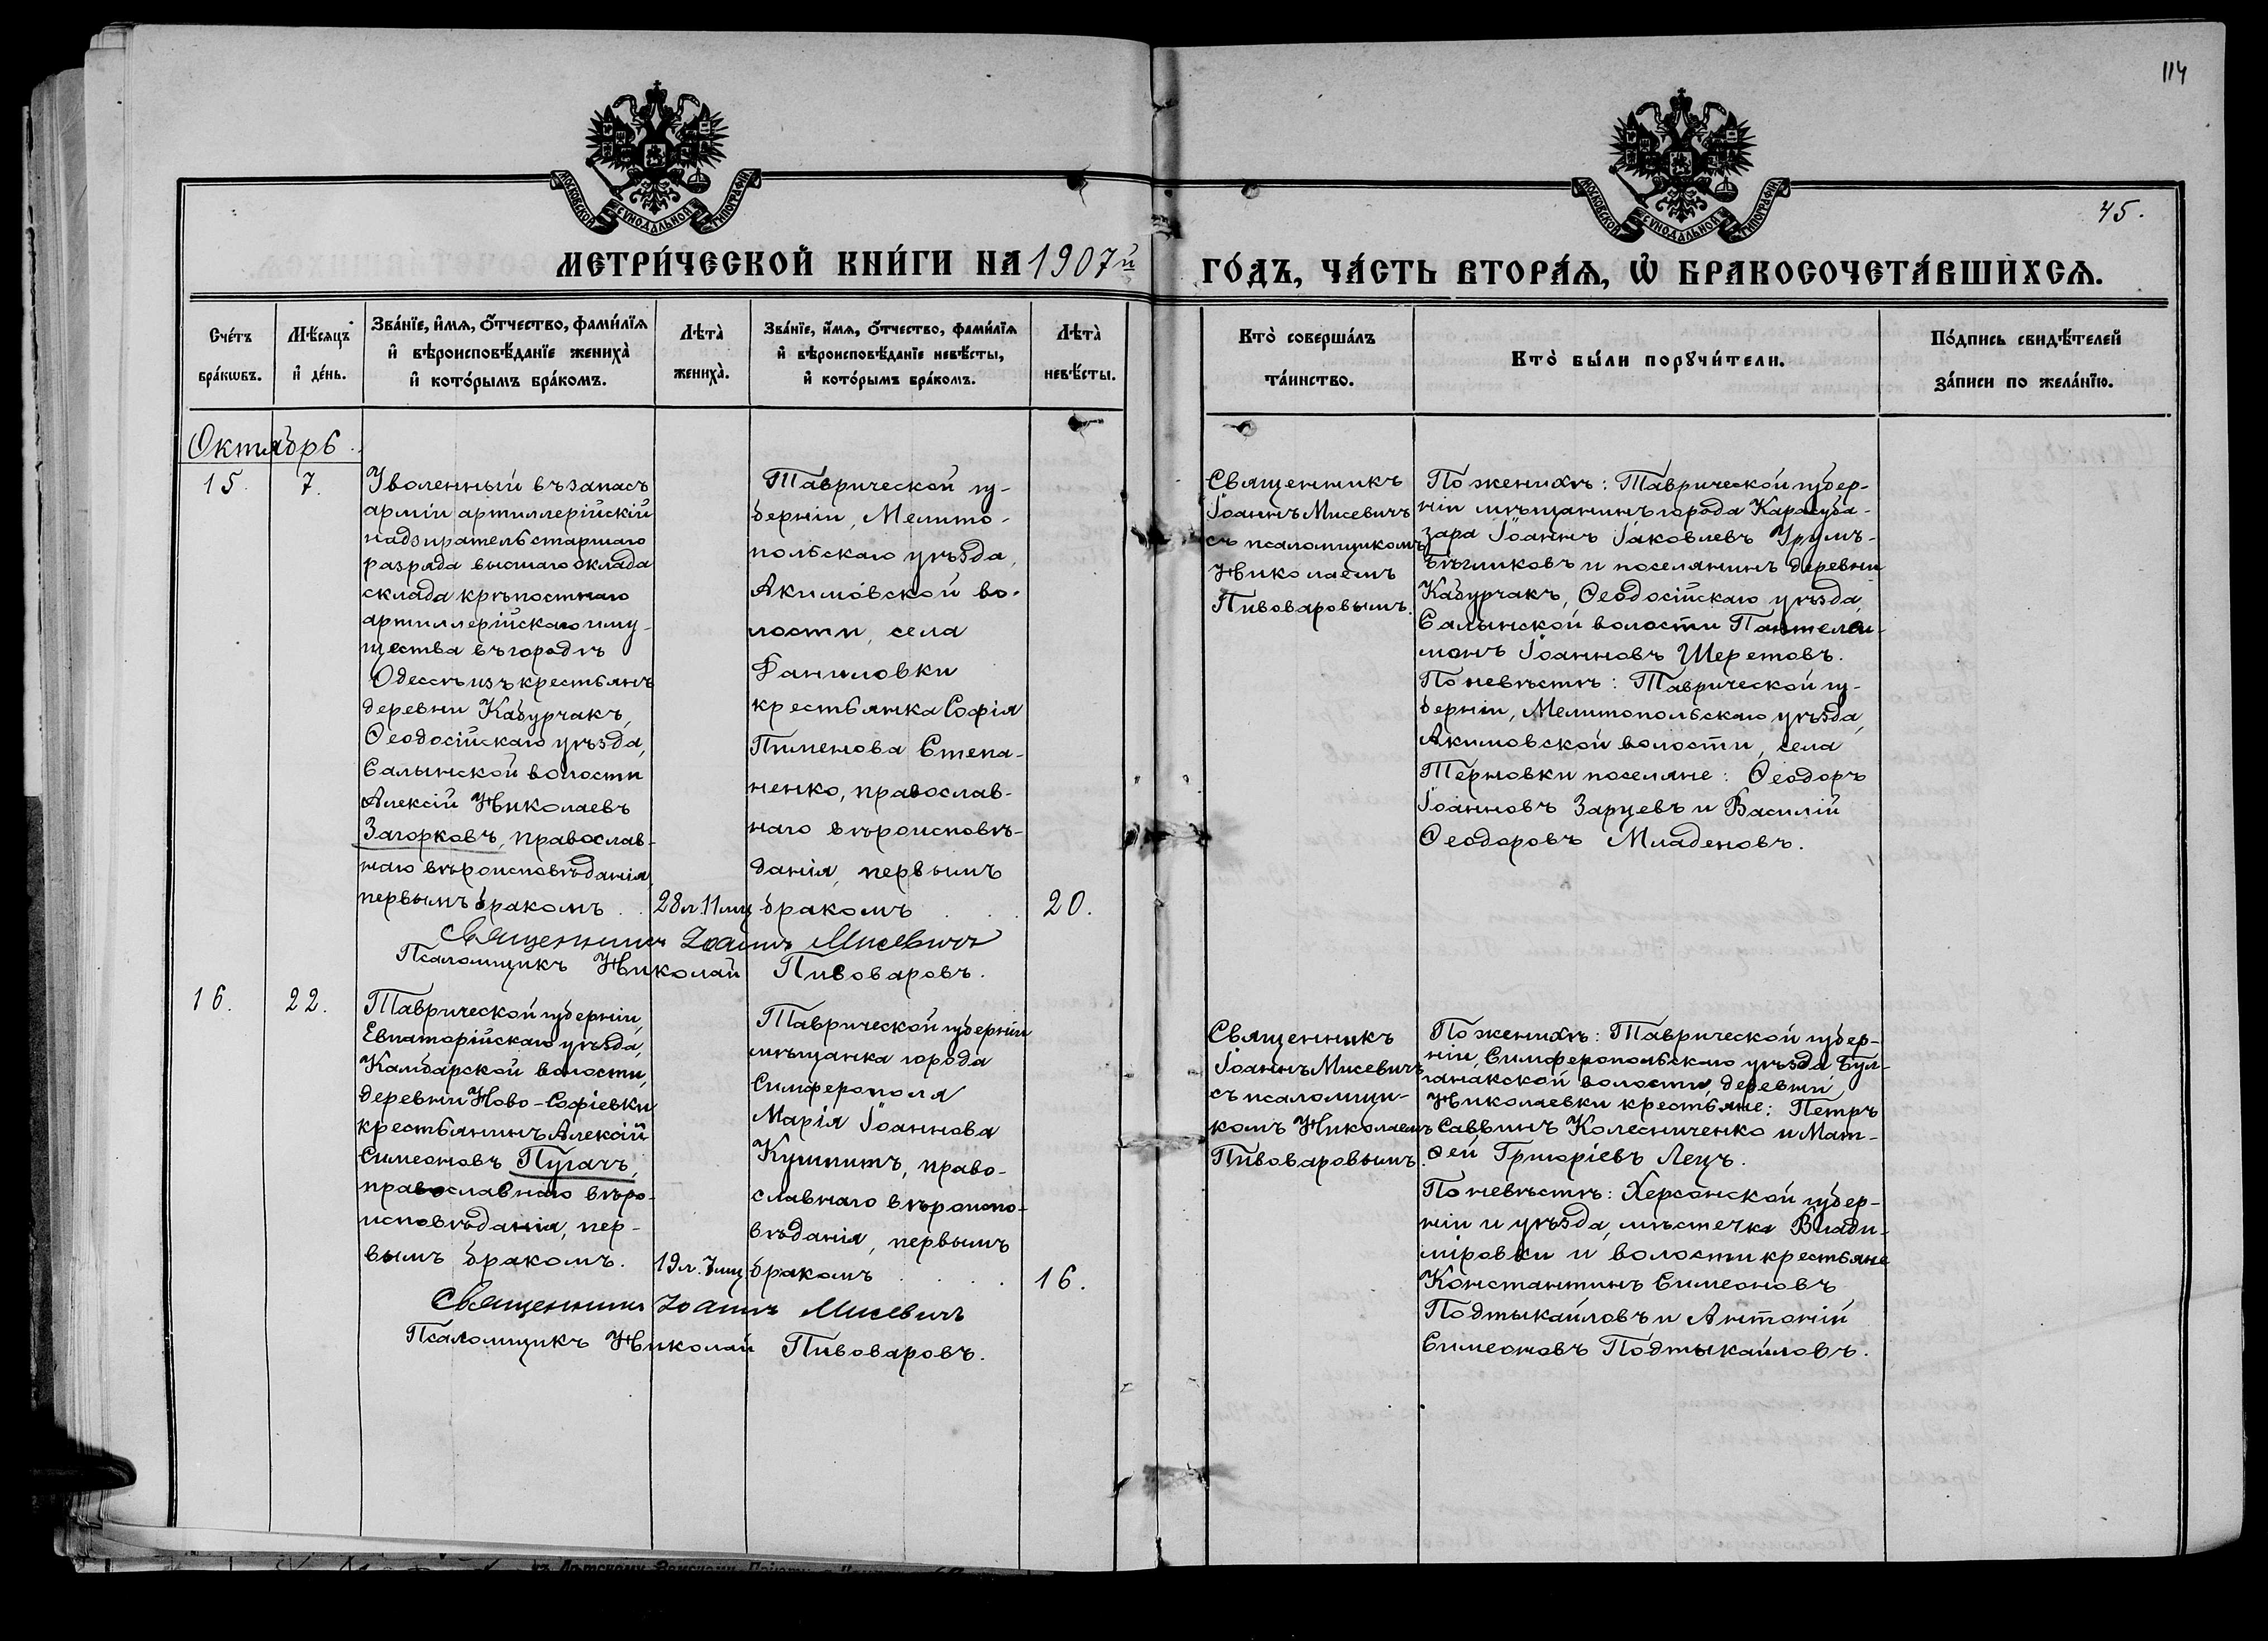 114
45.
МОСКОВСКОЙ СѴНОДАЛЬНОЙ ТИПОГРАФІИ
МОСКОВСКОЙ СѴНОДАЛЬНОЙ ТИПОГРАФІИ
МЕТРИ́ЧЕСКОЙ КНИ́ГИ НА 1907й
ГО́ДЪ, ЧА́СТЬ ВТОРА́Ѧ, Ѡ҆ БРАКОСОЧЕТА́ВШИХСѦ.
Сче́тъ
бра́кѡвъ.
Мѣ́сяцъ
и҆ де́нь.
Зва́нїе, и҆́мѧ, ѻ҆́тчество, фами́лїѧ
и҆ вѣроисповѣ́данїе жениха̀
и҆ кото́рымъ бра́комъ.
Лѣта̀
жениха̀.
Зва́нїе, и҆́мѧ, ѻ҆́тчество, фами́лїѧ
и҆ вѣроисповѣ́данїе невѣ́сты,
и҆ кото́рымъ бра́комъ.
Лѣта̀
невѣ́сты.
Кто̀ соверша́лъ
та́инство.
Кто̀ бы́ли порꙋчи́тели.
По́дпись свидѣ́телей
за́писи по жела́нїю.
Октябрь
15.
7.
Уволенный въ запасъ
арміи артиллерійскій
надзиратель старшаго
разряда высшаго оклада
склада крѣпостнаго
артиллерійскаго иму-
щества въ городѣ
Одессѣ изъ крестьянъ
деревни Кабурчакъ,
Ѳеодосійскаго уѣзда,
Салынской волости
Алексій Николаевъ
Загорковъ, православ-
наго вѣроисповѣданія,
первымъ бракомъ . .
28 л. 11 мц
Таврической гу-
берніи, Мелито-
польскаго уѣзда,
Акимовской во-
лости, села
Даниловки
крестьянка Софія
Пименова Степа-
ненко, православ-
наго вѣроисповѣ-
данія, первымъ
бракомъ . . .
20.
Священникъ
Іоаннъ Мисевичъ
съ псаломщикомъ
Николаемъ
Пивоваровымъ.
По женихѣ: Таврической губер-
ніи мѣщанинъ города Карасуба-
зара Іоаннъ Іаковлевъ Урумъ-
Бѣгликовъ и поселянинъ деревни
Кабурчакъ, Ѳеодосійскаго уѣзда,
Салынской волости Пантелеи-
монъ Іоанновъ Шеретовъ.
По невѣстѣ: Таврической гу-
берніи, Мелитопольскаго уѣзда,
Акимовской волости, села
Терновки поселяне: Ѳеодоръ
Іоанновъ Зарцевъ и Василій
Ѳеодоровъ Младеновъ.
Священникъ Іоаннъ Мисевичъ
Псаломщикъ Николай Пивоваровъ.
16.
22.
Таврической губерніи,
Евпаторійскаго уѣзда,
Камбарской волости,
деревни Ново-Софіевки
крестьянинъ Алексій
Симеоновъ Пугачъ,
православнаго вѣро-
исповѣданія, пер-
вымъ бракомъ.
19 л. 7 мц
Таврической губерніи
мѣщанка города
Симферополя
Марія Іоаннова
Кушнитъ, право-
славнаго вѣроиспо-
вѣданія, первымъ
бракомъ . . . .
16.
Священникъ
Іоаннъ Мисевичъ
съ псаломщи-
комъ Николаемъ
Пивоваровымъ.
По женихѣ: Таврической губер-
ніи, Симферопольскаго уѣзда Бул-
ганакской волости, деревни
Николаевки крестьяне: Петръ
Саввинъ Колесниченко и Мат-
ѳей Григоріевъ Лецъ.
По невѣстѣ: Херсонской губер-
ніи и уѣзда, мѣстечка Влади-
міровки и волости крестьяне
Константинъ Симеоновъ
Подтыкайловъ и Антоній
Симеоновъ Подтыкайловъ.
Священникъ Іоаннъ Мисевичъ
Псаломщикъ Николай Пивоваровъ.